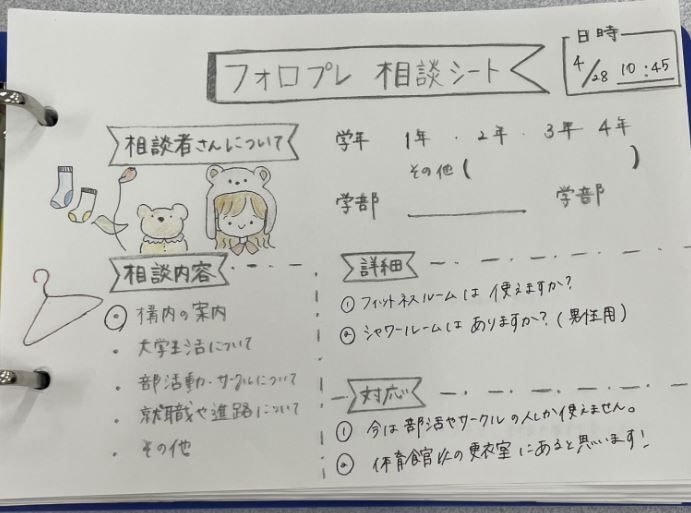 フォロプレ 相談シート
日時
4/28 10:45
相談者さんについて
学年 1年 ・ 2年 ・ 3年 4年
その他( )
学部 学部
相談内容
構内の案内
・ 大学生活について
・ 部活動・サークルについて
・ 就職や進路について
・ その他
詳細
① フィットネスルームは 使えますか?
② シャワールームは ありますか?(男性用)
対応
① 今は 部活やサークル の人しか使えません。
② 体育会館以の更衣室 にあると思います!